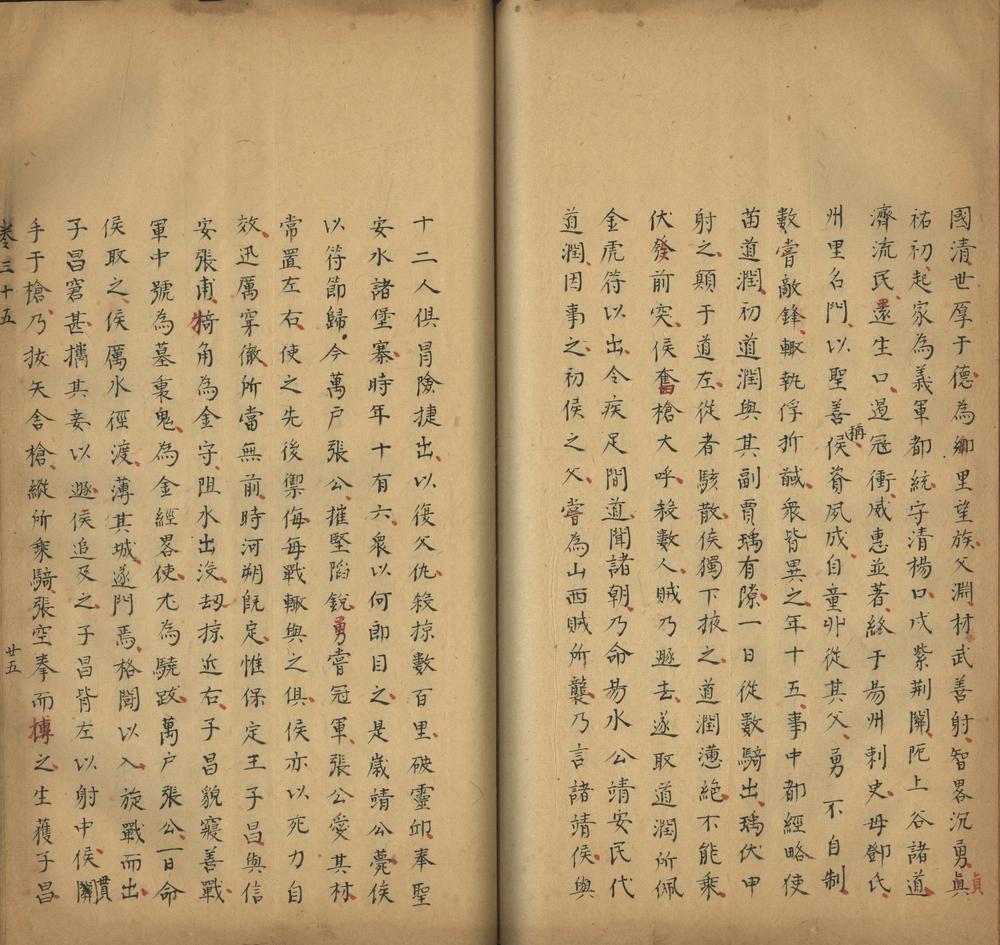 國清世厚于德為鄉里望族父淵材武善射智畧沉勇真貞
祐初起家為義軍都統守清楊口戍紫荆關阨上谷諸道
濟流民還生口遏冦衝威惠並著終于易州刺史母鄧氏
州里名門以聖善稱侯資夙成自童丱從其父勇不自制
數嘗敵鋒輙執俘折馘衆皆異之年十五事中都經略使
苗道潤初道潤與其副賈瑀有隙一日從數騎出瑀伏甲
射之顛于道左從者駭散侯獨下掖之道潤懣絶不能乘
伏發前突侯奮槍大呼殺數人賊乃遯去遂取道潤所佩
金虎符以出令疾足間道聞諸朝乃命易水公靖安民代
道潤因事之初侯之父嘗為山西賊所襲乃言諸靖侯與
十二人俱冐險捷出以復父仇殺掠數百里破靈邱奉聖
安水諸堡寨時年十有六衆以何郎目之是歲靖公薨侯
以符節歸今萬戸張公摧堅陷銳勇嘗冠軍張公愛其材
常置左右使之先後禦侮每戰輙與之俱侯亦以死力自
效迅厲穿徹所當無前時河朔旣定惟保定王子昌與信
安張甫犄角為金守阻水出没刼掠近右子昌貌寢善戰
軍中號為墓裏鬼為金經畧使尤為驍跋萬戸張公一日命
侯取之侯厲水徑渡薄其城遂鬥焉格鬪以入旋戰而出
子昌窘甚攜其妾以遯侯追及之子昌背左以射中侯貫
手于槍乃拔矢舍槍縱所乘騎張空拳而搏之生獲子昌
卷三十五
廿五